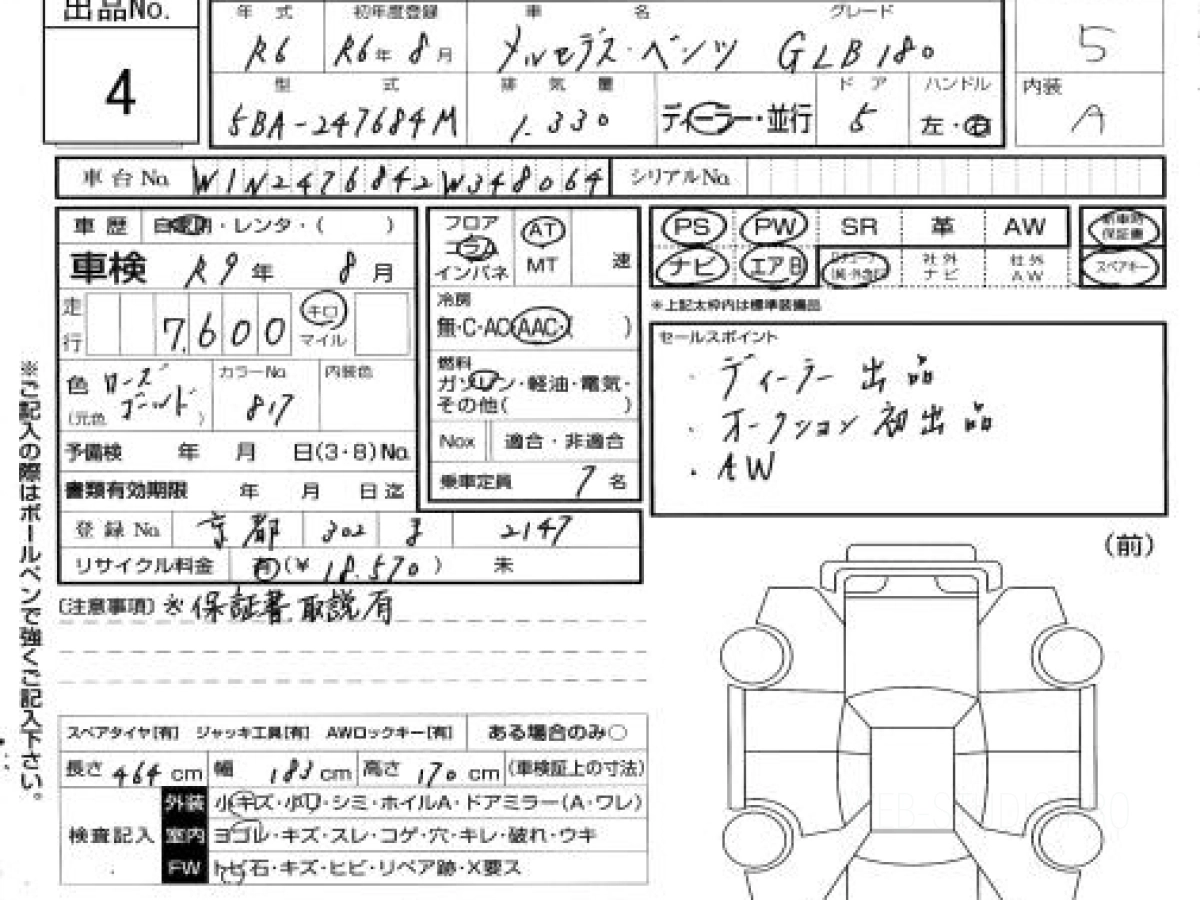 出品No.
4
年式 初年度登録 車名 グレード
R6 R6年8月 メルセデス・ベンツ GLB180
5
型式 排気量 ドア ハンドル
5BA-247684M 1.330 ディーラー・並行 5 左・右
内装
A
車台No. W1N2476842W348064 シリアルNo.
車歴 自家用・レンタ・( )
車検 R9年 8月
走行 7,600 キロ マイル
色 ローズゴールド (元色 )
カラーNo. 817 内装色
予備検 年 月 日(3・8)No.
書類有効期限 年 月 日迄
登録No. 京都 302 ま 2147
リサイクル料金 有(¥ 18.570 ) 未
フロア コラム インパネ AT MT 速
冷房
無・C・AC・AAC・( )
燃料
ガソリン・軽油・電気・
その他( )
Nox 適合・非適合
乗車定員 7名
PS PW SR 革 AW 新車時保証書
ナビ エアB 社外ナビ 社外AW スペアキー
※上記太枠内は標準装備品
セールスポイント
・ディーラー出品
・オークション初出品
・AW
(前)
〔注意事項〕※保証書、取説有
※ご記入の際はボールペンで強くご記入下さい。
スペアタイヤ[有] ジャッキ工具[有] AWロックキー[有] ある場合のみ○
長さ 464cm 幅 183cm 高さ 170cm (車検証上の寸法)
検査記入
外装 小キズ・小凹・シミ・ホイルA・ドアミラー(A・ワレ)
室内 ヨゴレ・キズ・スレ・コゲ・穴・キレ・破れ・ウキ
FW トビ石・キズ・ヒビ・リペア跡・X要ス